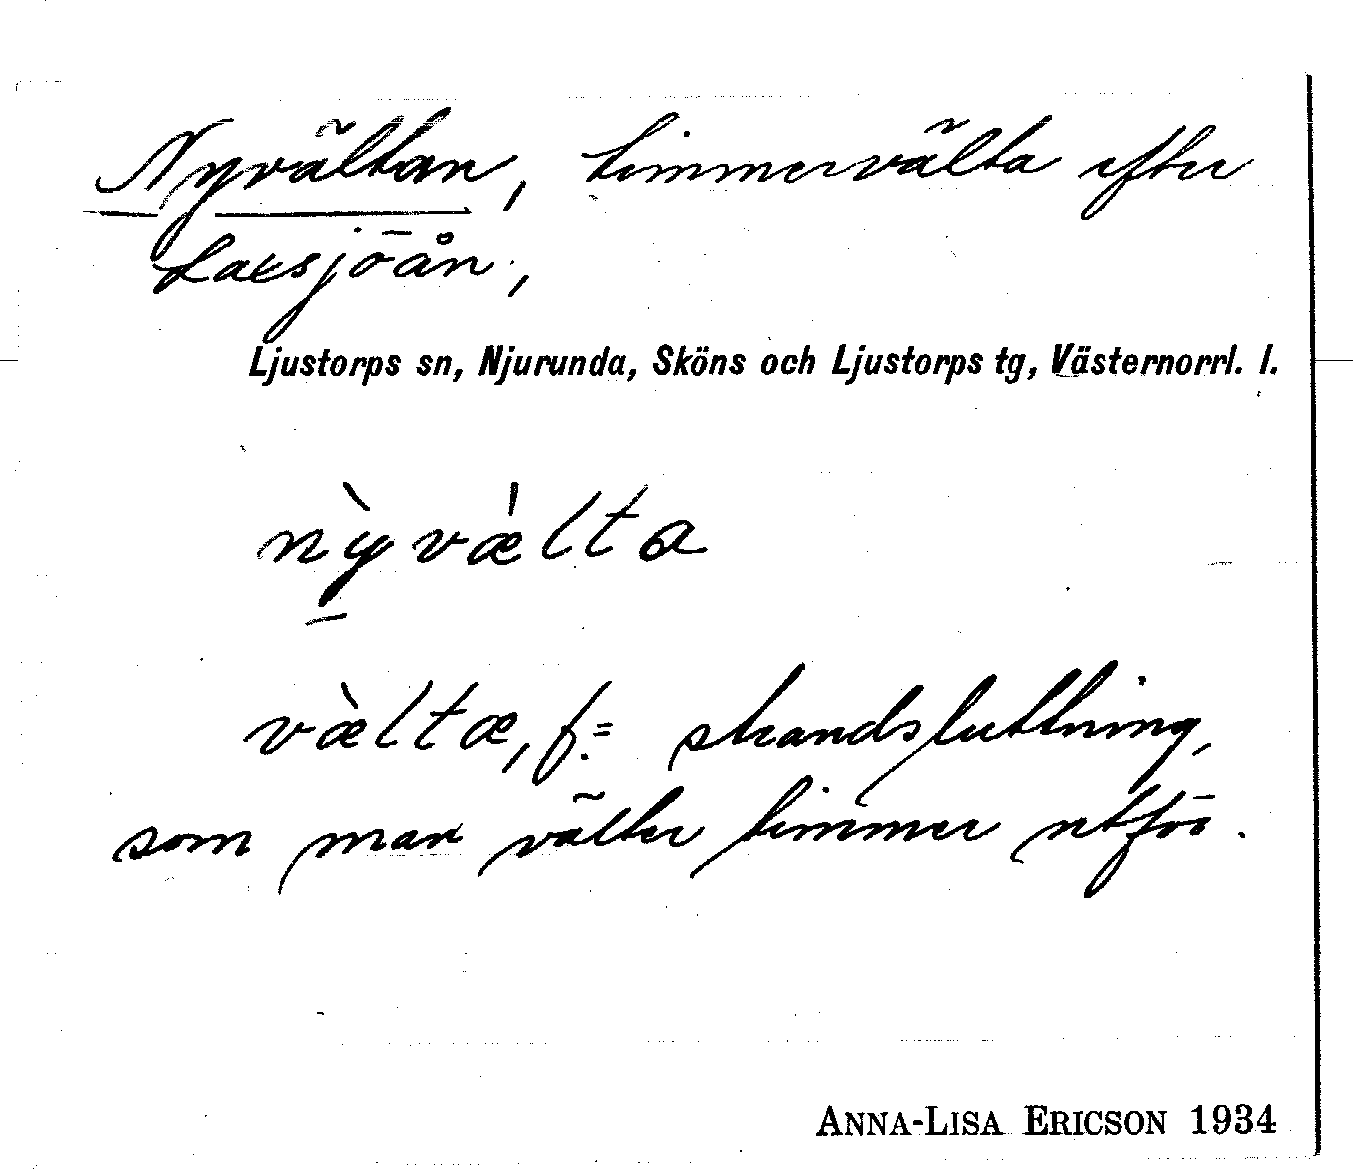 Nyvältan, timmervälta efter
Laxsjöån,
Ljustorps sn, Njurunda, Sköns och Ljustorps tg, Västernorrl. l.
nỳvæ̀lta
væ̀ltæ, f. = strandsluttning,
som man välter timmer utför.
ANNA-LISA ERICSON 1934